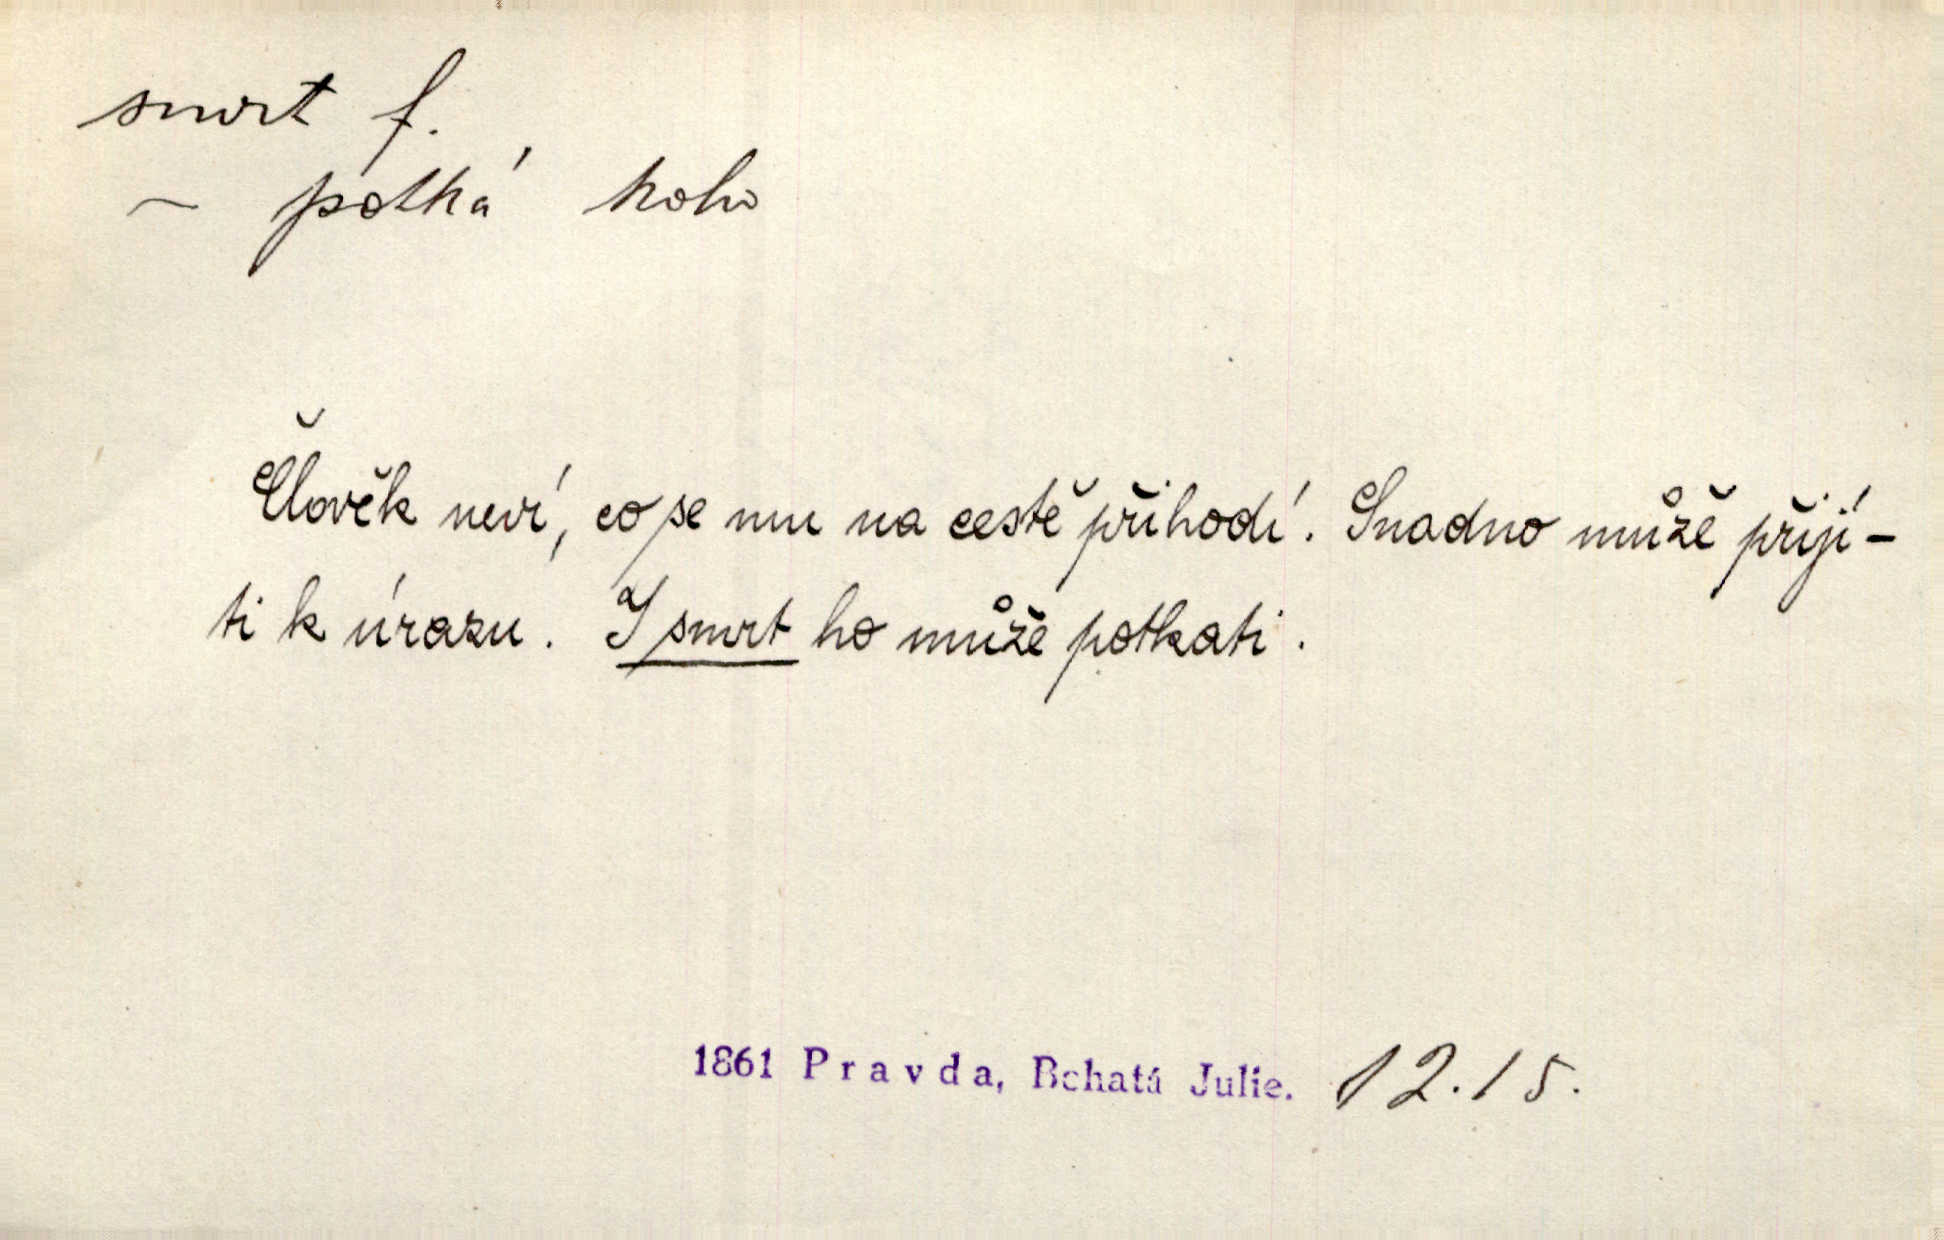 smrt f.
~ potká koho
Člověk neví, co se mu na cestě přihodí. Snadno může přijí-
ti k úrazu. I smrt ho může potkati.
1861 Pravda, Bohatá Julie. 12.15.